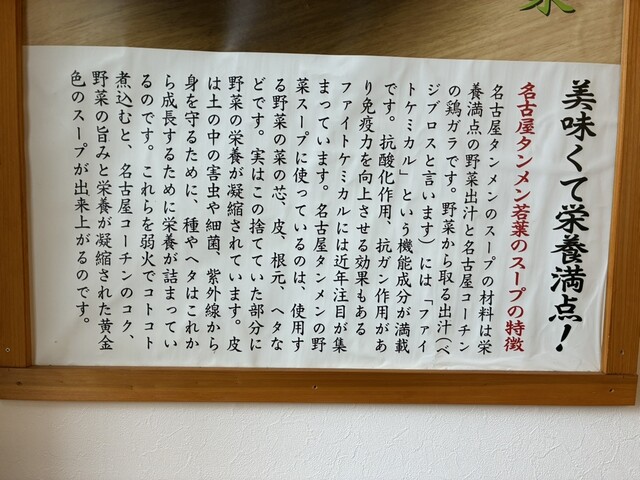 美味くて栄養満点!
名古屋タンメン若葉のスープの特徴
名古屋タンメンのスープの材料は栄
養満点の野菜出汁と名古屋コーチン
の鶏ガラです。野菜から取る出汁(ベ
ジブロスと言います)には「ファイ
トケミカル」という機能成分が満載
です。抗酸化作用、抗ガン作用があ
り免疫力を向上させる効果もある
ファイトケミカルには近年注目が集
まっています。名古屋タンメンの野
菜スープに使っているのは、使用す
る野菜の菜の芯、皮、根元、ヘタな
どです。実はこの捨てていた部分に
野菜の栄養が凝縮されています。皮
は土の中の害虫や細菌、紫外線から
身を守るために、種やヘタはこれか
ら成長するために栄養が詰まってい
るのです。これらを弱火でコトコト
煮込むと、名古屋コーチンのコク、
野菜の旨みと栄養が凝縮された黄金
色のスープが出来上がるのです。